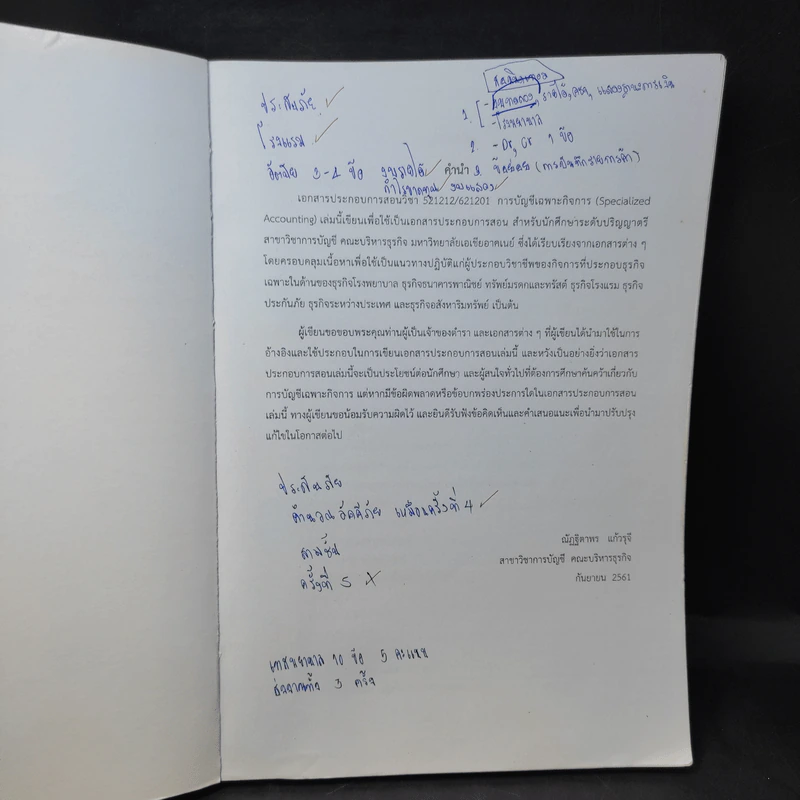 ประกันภัย
โรงแรม
- โรงพยาบาล
2. - Dr, Cr 1 ข้อ
อัตนัย 3-4 ข้อ งบรายได้
คำนำ
กำไรขาดทุน งบแสดง
เอกสารประกอบการสอนวิชา 521212/621201 การบัญชีเฉพาะกิจการ (Specialized
Accounting) เล่มนี้เขียนเพื่อใช้เป็นเอกสารประกอบการสอน สำหรับนักศึกษาระดับปริญญาตรี
สาขาวิชาการบัญชี คณะบริหารธุรกิจ มหาวิทยาลัยเอเชียอาคเนย์ ซึ่งได้เรียบเรียงจากเอกสารต่าง ๆ
โดยครอบคลุมเนื้อหาเพื่อใช้เป็นแนวทางปฏิบัติแก่ผู้ประกอบวิชาชีพของกิจการที่ประกอบธุรกิจ
เฉพาะในด้านของธุรกิจโรงพยาบาล ธุรกิจธนาคารพาณิชย์ ทรัพย์มรดกและทรัสต์ ธุรกิจโรงแรม ธุรกิจ
ประกันภัย ธุรกิจระหว่างประเทศ และธุรกิจอสังหาริมทรัพย์ เป็นต้น
ผู้เขียนขอขอบพระคุณท่านผู้เป็นเจ้าของตำรา และเอกสารต่าง ๆ ที่ผู้เขียนได้นำมาใช้ในการ
อ้างอิงและใช้ประกอบในการเขียนเอกสารประกอบการสอนเล่มนี้ และหวังเป็นอย่างยิ่งว่าเอกสาร
ประกอบการสอนเล่มนี้จะเป็นประโยชน์ต่อนักศึกษา และผู้สนใจทั่วไปที่ต้องการศึกษาค้นคว้าเกี่ยวกับ
การบัญชีเฉพาะกิจการ แต่หากมีข้อผิดพลาดหรือข้อบกพร่องประการใดในเอกสารประกอบการสอน
เล่มนี้ ทางผู้เขียนขอน้อมรับความผิดไว้ และยินดีรับฟังข้อคิดเห็นและคำเสนอแนะเพื่อนำมาปรับปรุง
แก้ไขในโอกาสต่อไป
ประกันภัย
คำนวณอัคคีภัย เหมือนครั้งที่ 4
ณัฏฐิตาพร แก้วรุจี
สาขาวิชาการบัญชี คณะบริหารธุรกิจ
ครั้งที่ 5
กันยายน 2561
10 ข้อ 5 คะแนน
3 ครั้ง